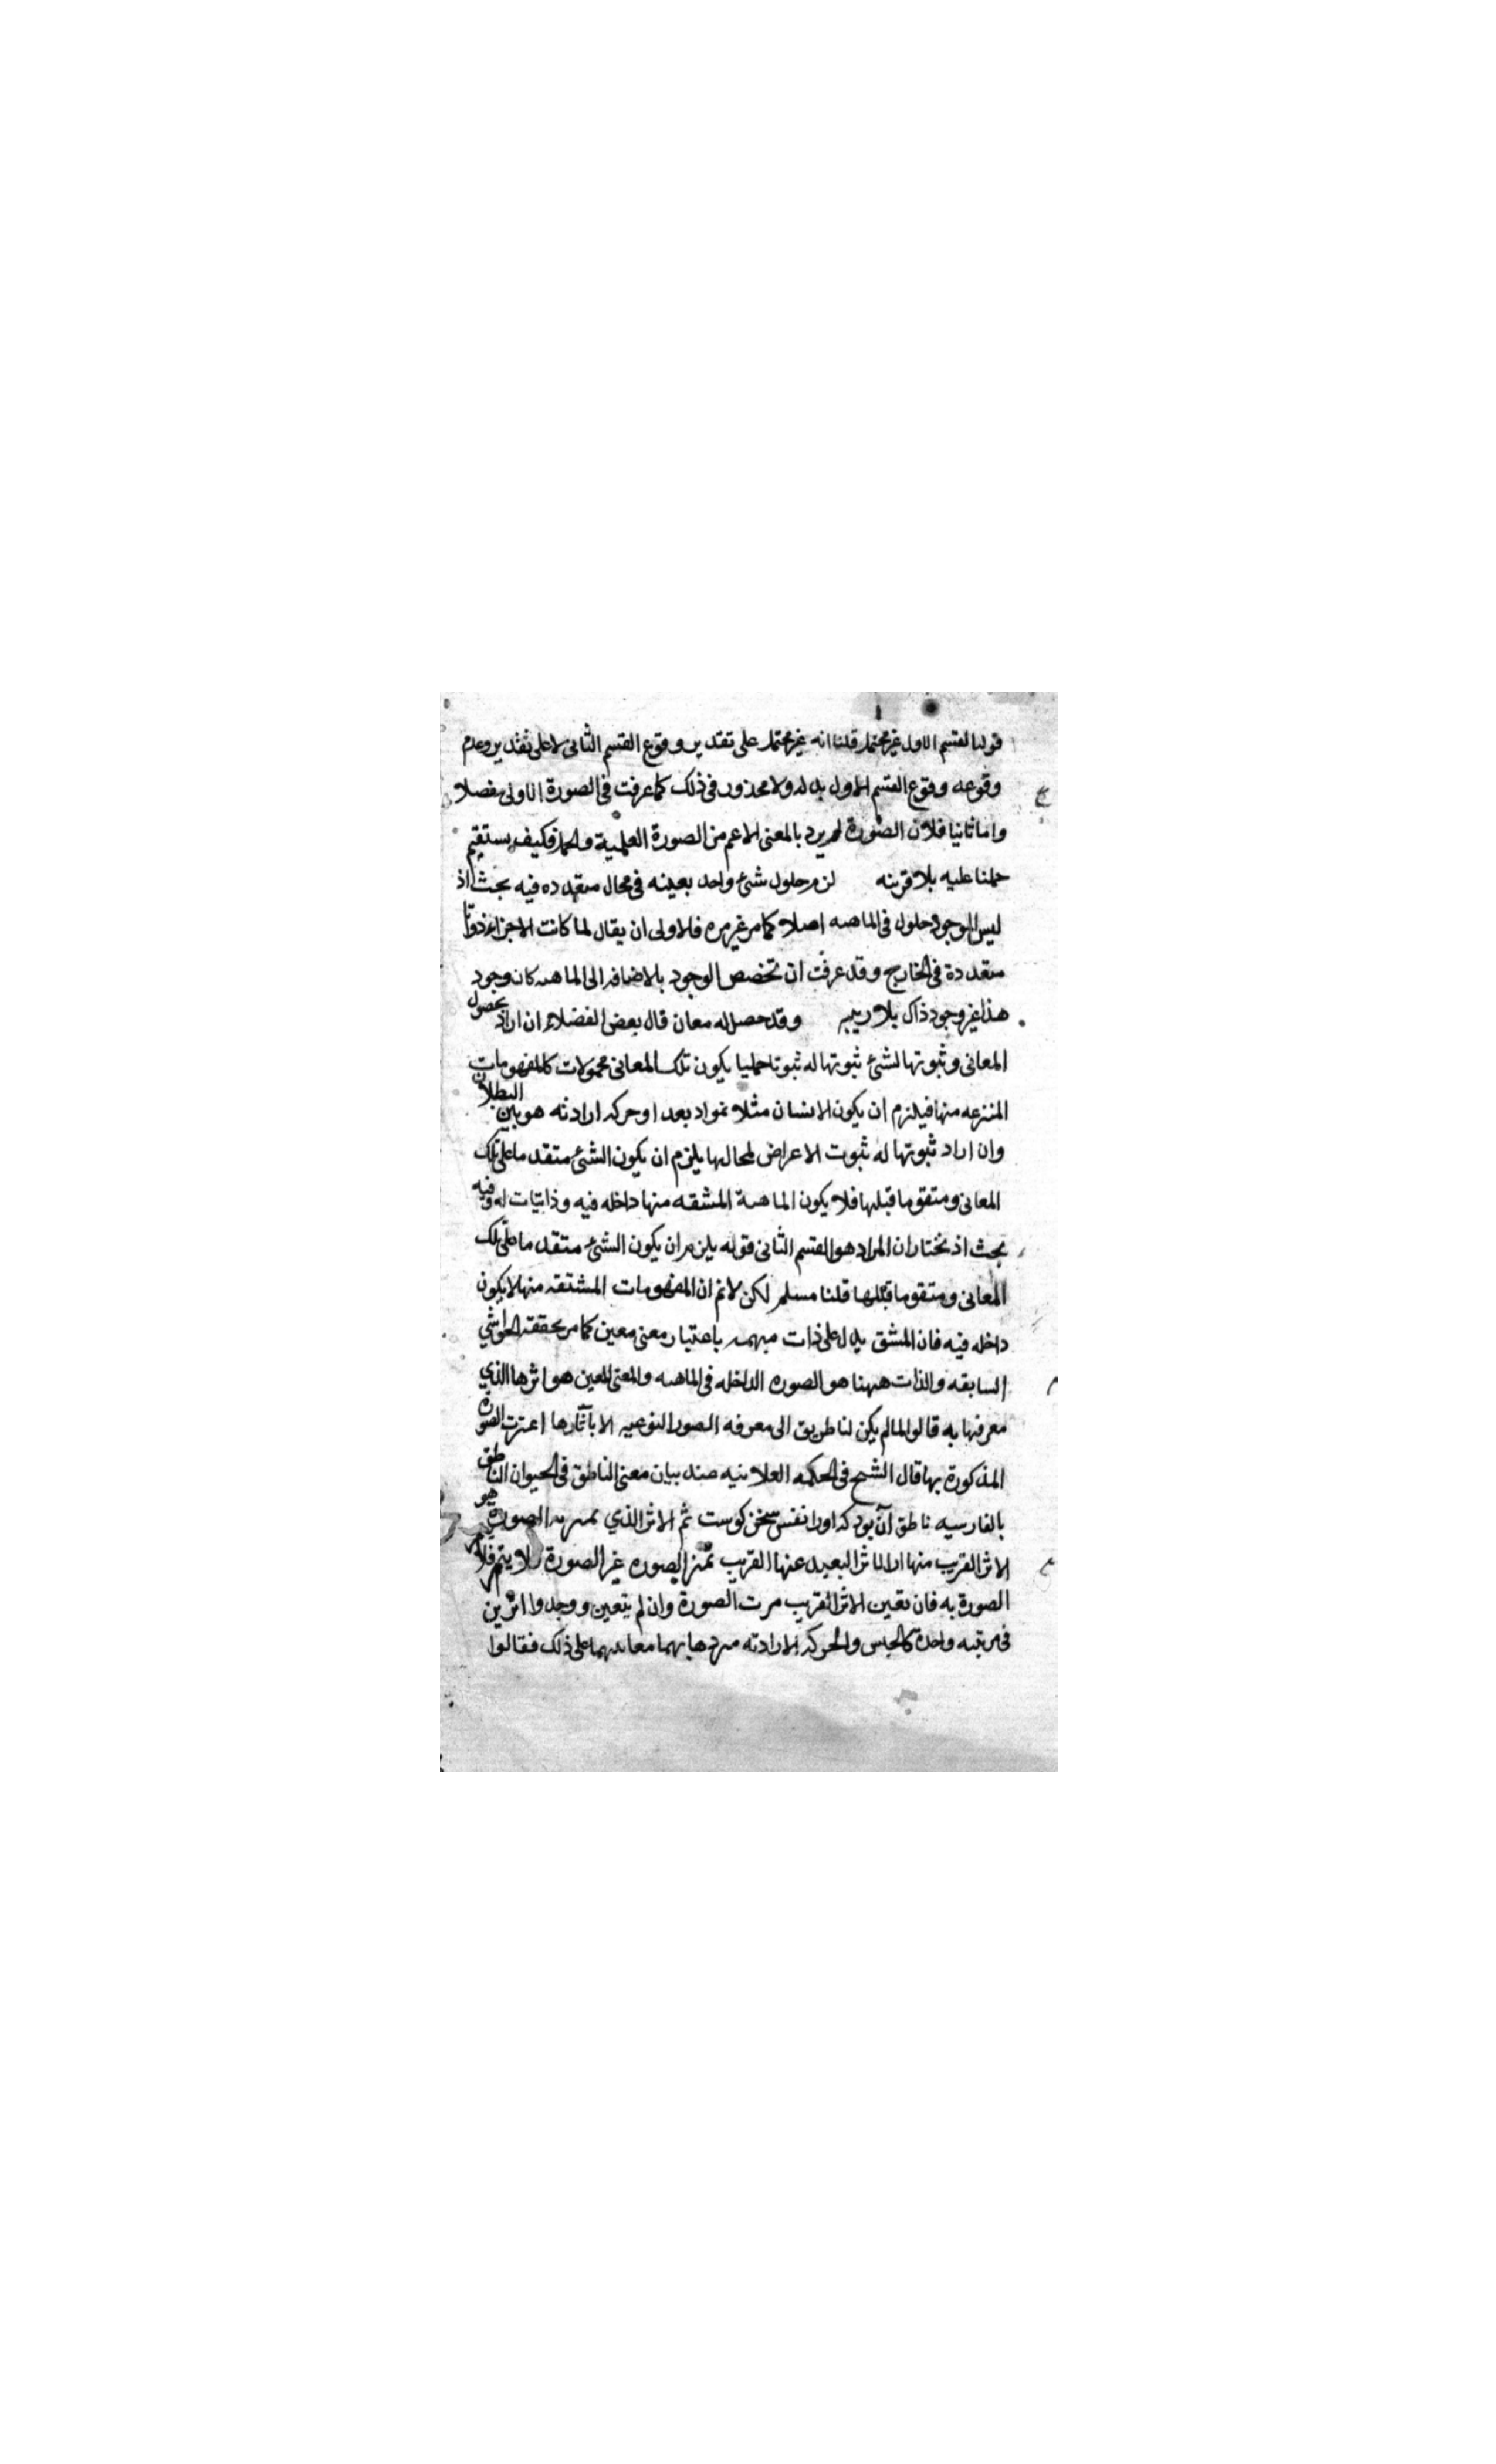 قولنا القسم الاول غير محتمل قلنا انه غير محتمل على تقدير وقوع القسم الثانى لا على تقدير وعدم
وقوعه ووقوع القسم الاول بدله ولا محذور فى ذلك كما عرفت فى الصورة الاولى مفصلا
واما ثانيا فلان الصورة لم يرد بالمعنى الاعم من الصورة العلمية والحمل فكيف يستقيم
حملنا عليه بلا قرينه لزم حلول شئ واحد بعينه فى محال متعدده فيه بحث اذ
ليس الوجود حلول فى الماهيه اصلا كما مر غير مره فالاولى ان يقال لما كانت الاجزاء ذوتا
متعددة فى الخارج وقد عرفت ان تخصص الوجود بالاضافه الى الماهيه كان وجود
هذا غير وجود ذاك بلا ريبه وقد حصل له معان قال بعض الفضلاء ان اراد بحصول
المعانى وثبوتها لشئ ثبوتها له ثبوتا حمليا يكون تلك المعانى محمولات كالمفهومات
المنتزعه منها فيلزم ان يكون الانسان مثلا نموا وبعدا وحركه اراديه هو بين البطلان
وان اراد ثبوتها له ثبوت الاعراض لمحالها يلزم ان يكون الشئ متقدما على تلك
المعانى ومتقوما قبلها فلا يكون الماهية المشتقه منها داخله فيه وذاتيات له وفيه
بحث اذ نختار ان المراد هو القسم الثانى قوله يلزم ان يكون الشئ متقدما على تلك
المعانى ومتقوما قبلها قلنا مسلم لكن لا نم ان المفهومات المشتقه منها لا يكون
داخله فيه فان المشتق يدل على ذات مبهمه باعتبار معنى معين كما مر تحقيقه الحواشي
السابقه والذات ههنا هو الصوره الداخله فى الماهيه والمعنى المعين هو اثرها الذي
معرفتها به قالوا لما لم يكن لنا طريق الى معرفه الصور النوعيه الا بآثارها اعتبرت الصورة
المذكورة بها قال الشيخ فى الحكمه العلائيه عند بيان معنى الناطق فى الحيوان الناطق
بالفارسيه ناطق آن بود كه اورا نفس سخن كوست ثم الاثر الذي به الصورة هو
الاثر القريب منها اذ الاثر البعيد عنها القريب الصوره غير الصورة فلا يتم
الصورة به فان تعين الاثر القريب الصورة وان لم يتعين ووجدوا اثرين
فى مرتبه واحدة كالحس والحركه الاراديه بهما معا على ذلك فقالوا